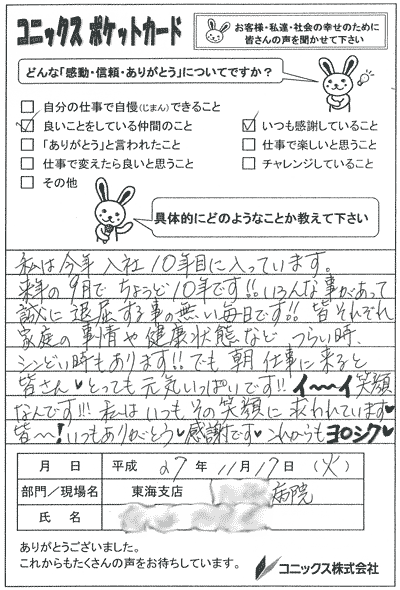 コニックス ポケットカード
お客様・私達・社会の幸せのために
皆さんの声を聞かせて下さい
どんな「感動・信頼・ありがとう」についてですか？
自分の仕事で自慢(じまん)できること
良いことをしている仲間のこと
いつも感謝していること
「ありがとう」と言われたこと
仕事で楽しいと思うこと
仕事で変えたら良いと思うこと
チャレンジしていること
その他
具体的にどのようなことか教えて下さい
私は今年入社10年目に入っています。
来年の9月でちょうど10年です!! いろんな事があって
誠に退屈する事の無い毎日です!! 皆それぞれ
家庭の事情や健康状態など つらい時、
シンどい時もあります!! でも朝仕事に来ると
皆さん♥とっても元気いっぱいです!! イ〜〜イ笑顔
なんです!!! 私はいつもその笑顔に救われています♥
皆〜〜! いつもありがとう♥感謝です♥これからもヨロシク♥
月 日 平成 27年 11月 17日 (火)
部門／現場名 東海支店 病院
氏 名
ありがとうございました。
これからもたくさんの声をお待ちしています。
コニックス株式会社